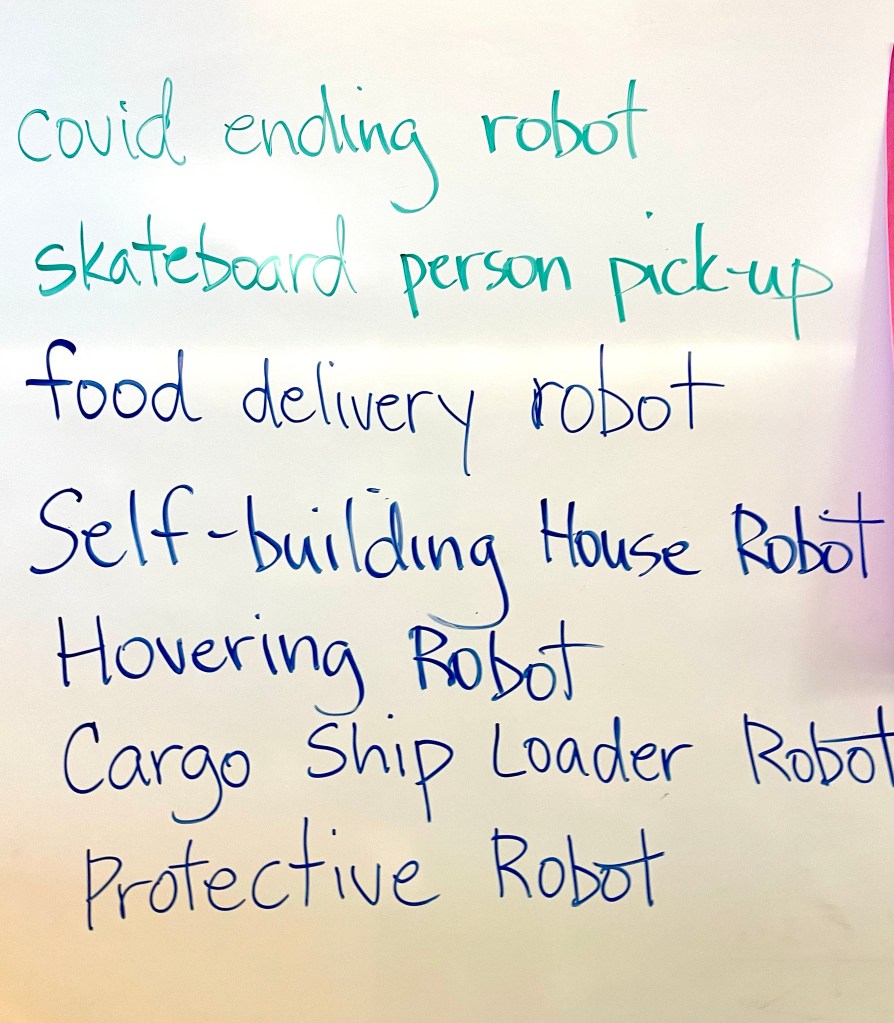 covid ending robot
skateboard person pick-up
food delivery robot
Self-building House Robot
Hovering Robot
Cargo Ship Loader Robot
Protective Robot